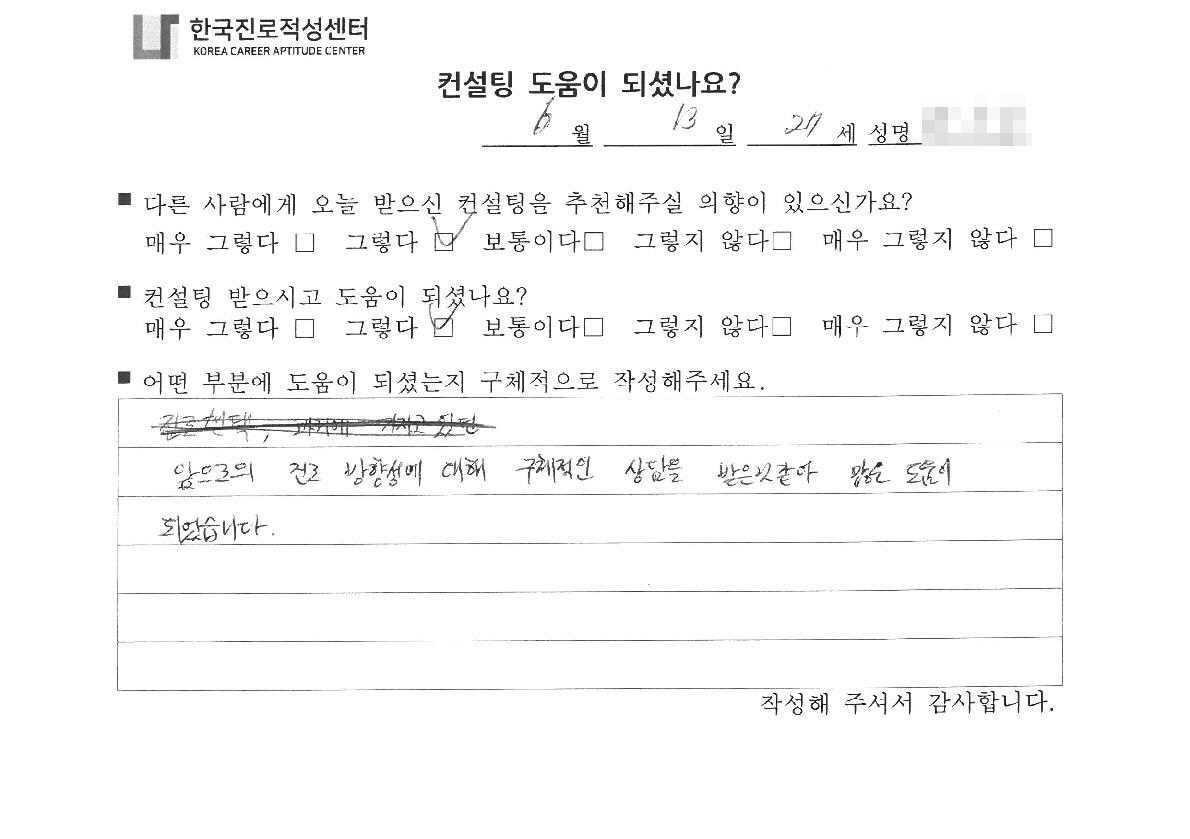 한국진로적성센터
KOREA CAREER APTITUDE CENTER
컨설팅 도움이 되셨나요?
6 월 13 일 27 세 성명
■ 다른 사람에게 오늘 받으신 컨설팅을 추천해주실 의향이 있으신가요?
매우 그렇다 □ 그렇다 ☑ 보통이다□ 그렇지 않다□ 매우 그렇지 않다 □
■ 컨설팅 받으시고 도움이 되셨나요?
매우 그렇다 □ 그렇다 ☑ 보통이다□ 그렇지 않다□ 매우 그렇지 않다 □
■ 어떤 부분에 도움이 되셨는지 구체적으로 작성해주세요.
진로선택, 과거에 가지고 있던
앞으로의 진로 방향성에 대해 구체적인 상담을 받은것같아 많은 도움이
되었습니다.
작성해 주셔서 감사합니다.